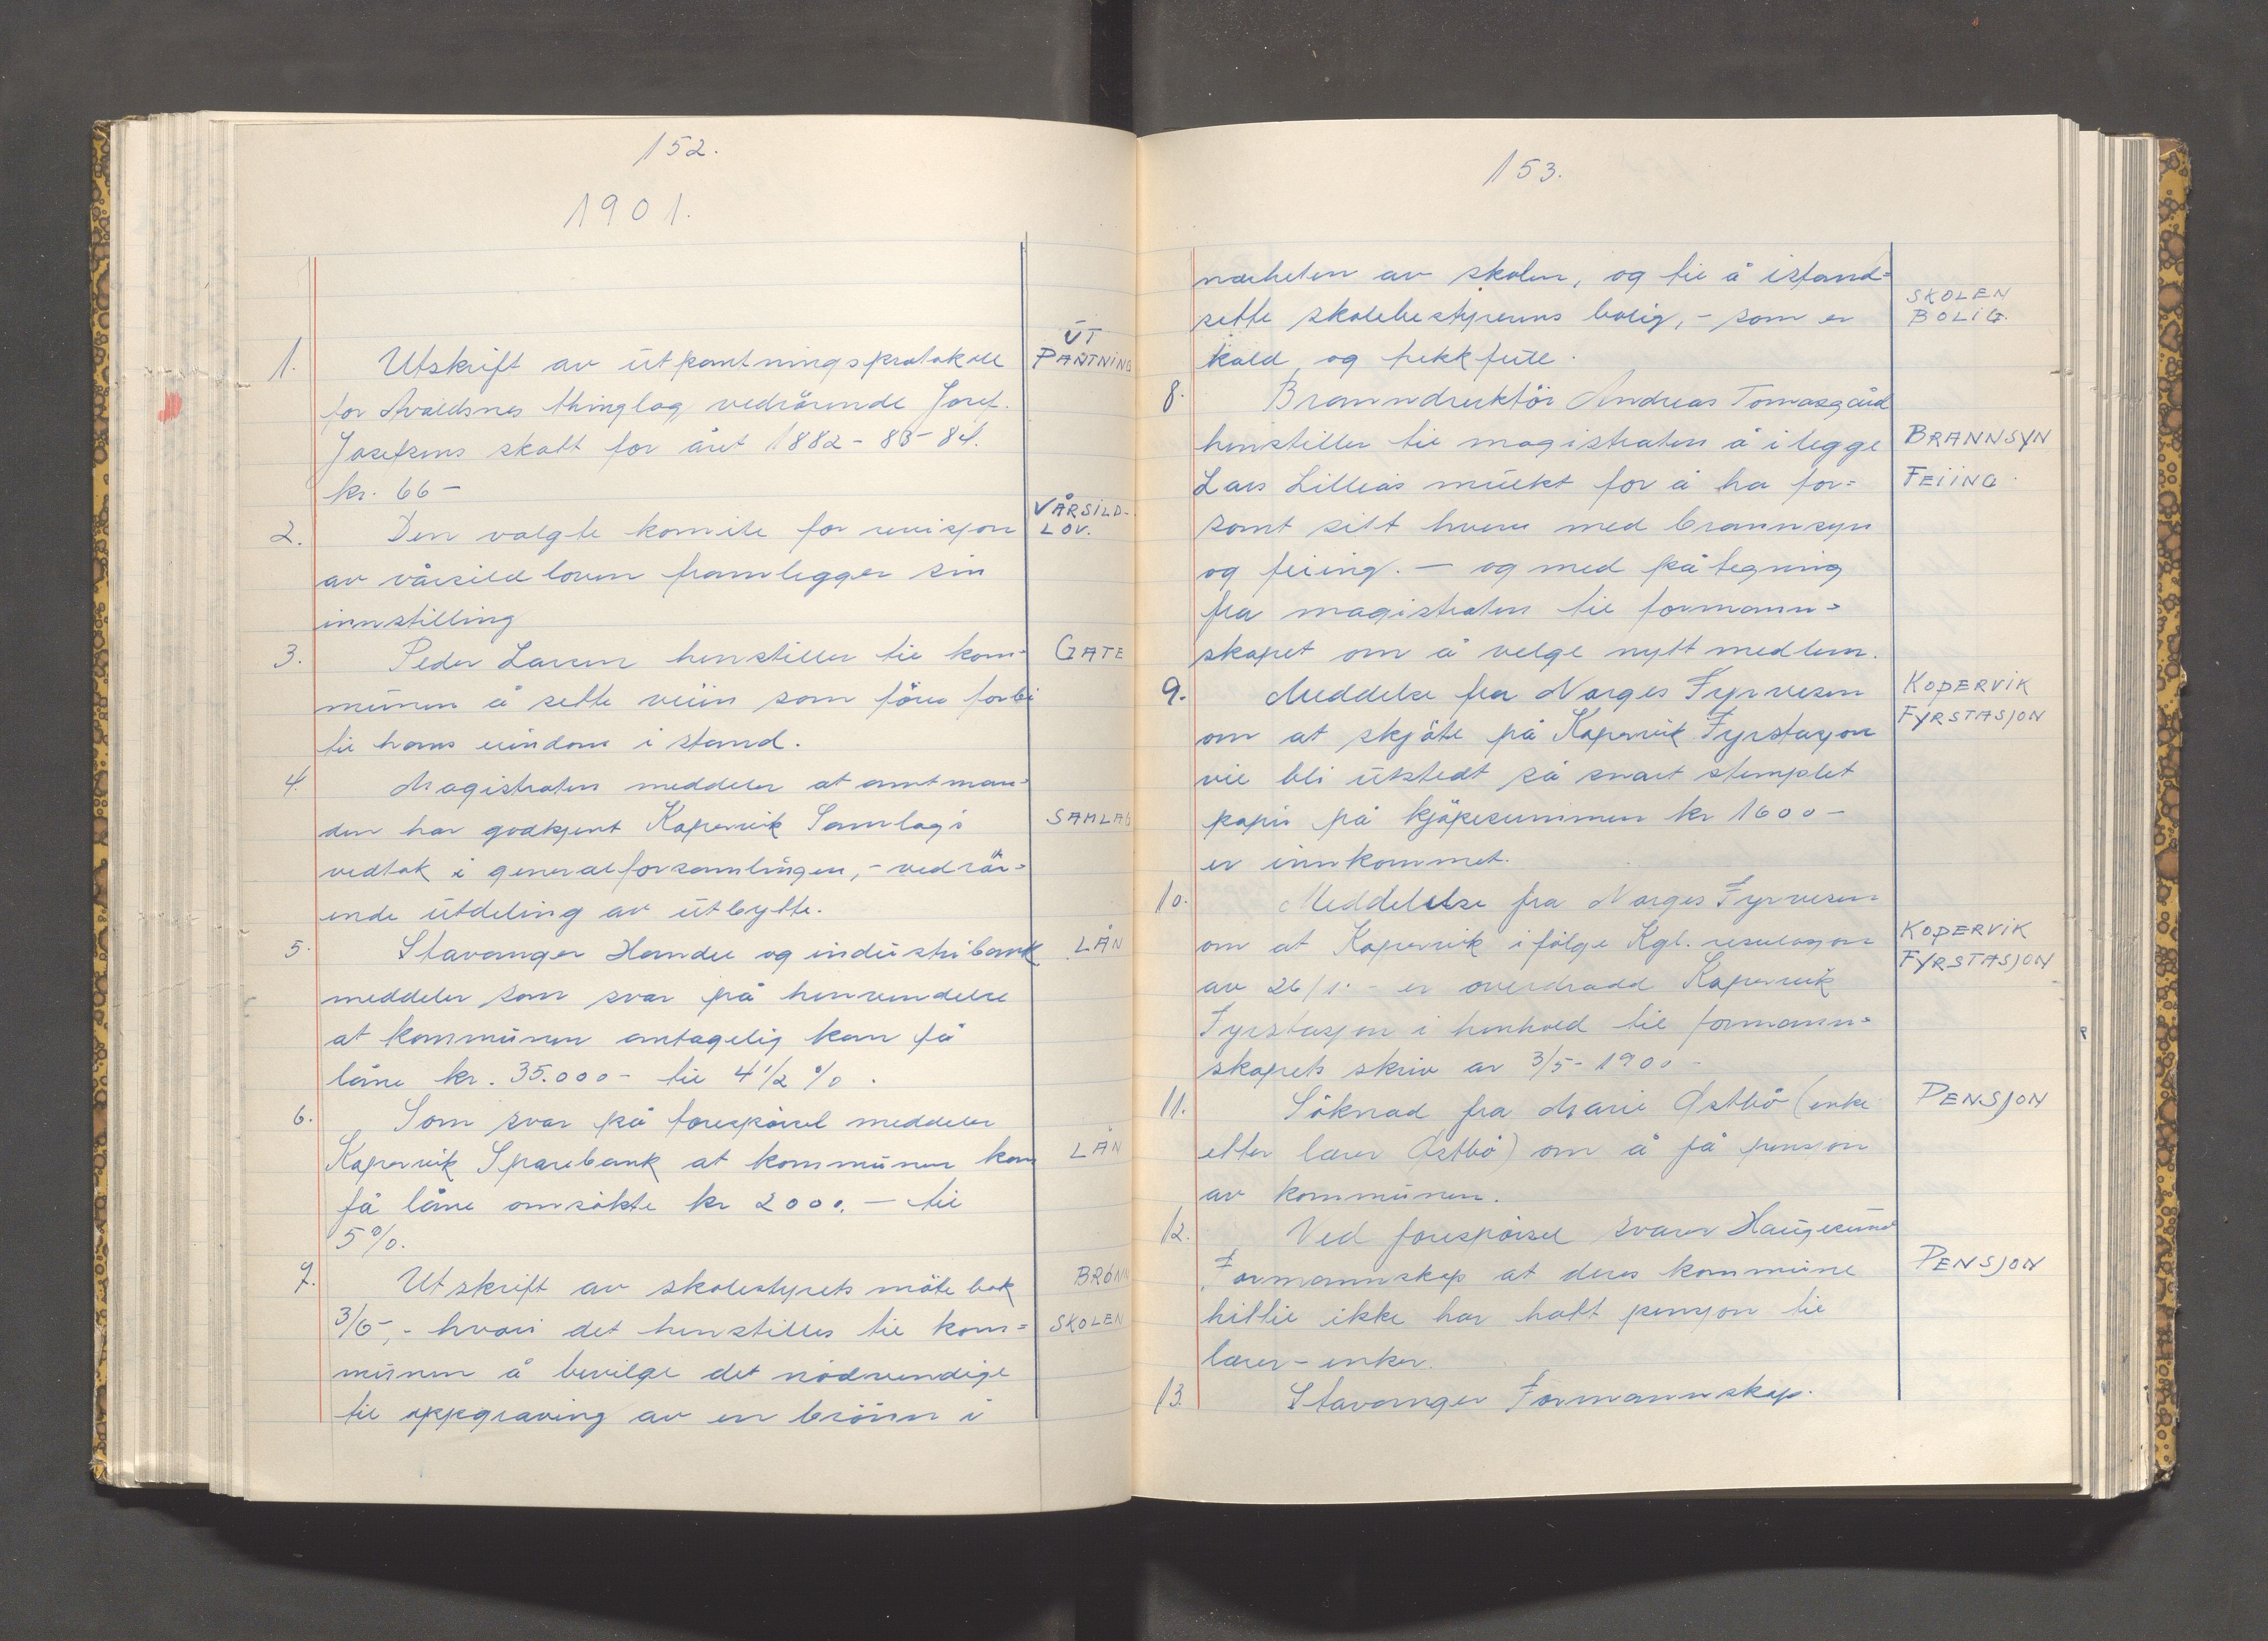 152.
1901.
1. Utskrift av utpantningsprotokoll UT PANTNING
for Avaldsnes thinglag vedrörende Josef.
Josefsens skatt for året 1882-83-84.
kr. 66-
2. Den valgte komite for revisjon VÅRSILD-LOV.
av vårsildloven framlegger sin
innstilling
3. Peder Larsen henstiller til kom- GATE
munen å sette veien som förer forbi
til hans eiendom i stand.
4. Magistraten meddeler at amtman=
den har godkjent Kopervik Samlags SAMLAG
vedtak i generalforsamlingen,- vedrör=
ende utdeling av utbytte.
5. Stavanger Handel og industribank LÅN
meddeler som svar på henvendelse
at kommunen antagelig kan få
låne kr. 35.000- til 4 1/2 %.
6. Som svar på forespörsel meddeler
Kopervik Sparebank at kommunen kan LÅN
få låne omsökte kr 2000.- til
5%.
7. Utskrift av skolestyrets möte bok BRÖNN
3/6-,- hvori det henstilles til kom= SKOLEN
munen å bevilge det nödvendige
til oppgraving av en brönn i
153.
nærheten av skolen, og til å istand=
sette skolebestyrerens bolig,- som er SKOLEN BOLIG.
kald og trekkfull.
8. Branndirektör Andreas Tomasgård
henstiller til magistraten å ilegge BRANNSYN
Lars Lilleås mulkt for å ha for= FEIING.
sömt sitt hverv med brannsyn
og feiing. - og med påtegning
fra magistraten til formann=
skapet om å velge nytt medlem.
9. Meddelse fra Norges Fyrvesen KOPERVIK
om at skjöte på Kopervik Fyrstasjon FYRSTASJON
vil bli utstedt så snart stemplet
papir på kjöpesummen kr 1600-
er innkommet.
10. Meddelelse fra Norges Fyrvesen
om at Kopervik ifölge Kgl. resolusjon KOPERVIK
av 26/1. - er overdradd Kopervik FYRSTASJON
Fyrstasjon i henhold til formann=
skapets skriv av 3/5-1900-
11. Söknad fra Marie Östbö (enke PENSJON
etter lærer Östbö) om å få pensjon
av kommunen.
12. Ved forespörsel svarer Haugesund
Formannskap at deres kommune PENSJON
hittil ikke har hatt pensjon til
lærer-enker.
13. Stavanger Formannskap.